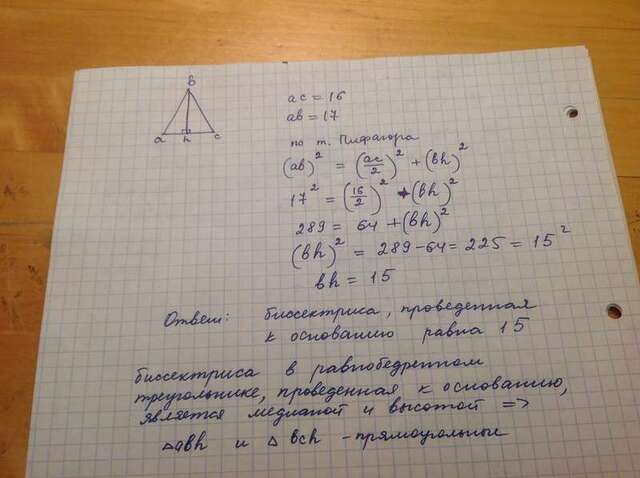 в
a h c
ac = 16
ab = 17
по т. Пифагора
(ab)² = (ac/2)² + (bh)²
17² = (16/2)² + (bh)²
289 = 64 + (bh)²
(bh)² = 289 - 64 = 225 = 15²
bh = 15
Ответ: биссектриса, проведенная
к основанию равна 15
биссектриса в равнобедренном
треугольнике, проведенная к основанию,
является медианой и высотой =>
△abh и △ bch - прямоугольные